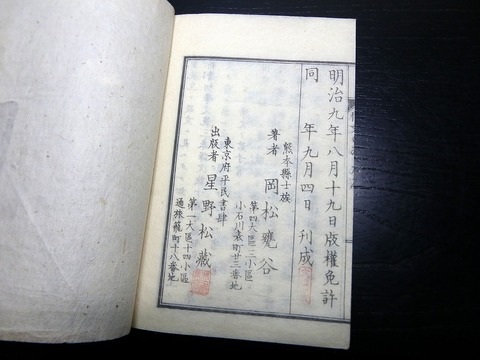 明治九年八月十九日版權免許
同　年九月四日刊成
熊本縣士族
著者　岡松甕谷
第四大區三小區
小石川表町廿三番地
東京府平民書肆
出版者　星野松藏
第一大區十四小區
通旅籠町十八番地